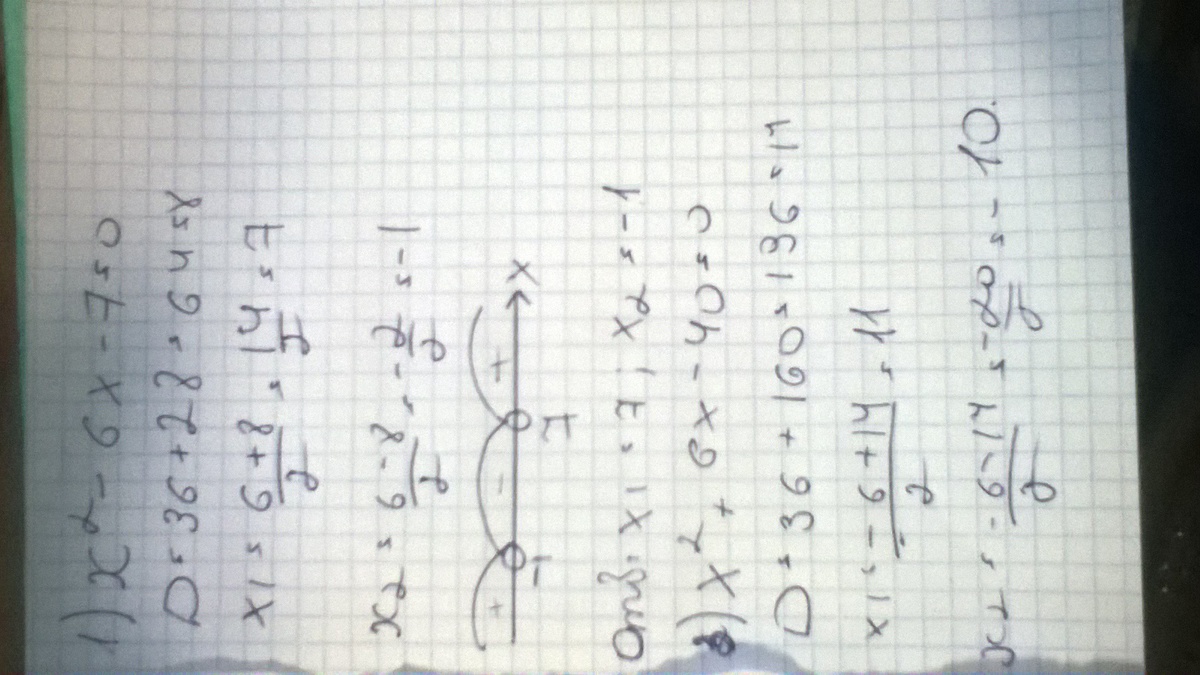 1) x² - 6x - 7 = 0
D = 36 + 28 = 64 = 8
x1 = (6+8)/2 = 14/2 = 7
x2 = (6-8)/2 = -2/2 = -1
+ - + x
-1 7
Отв. x1 = 7; x2 = -1
) x² + 6x - 40 = 0
D = 36 + 160 = 196 = 14
x1 = (-6+14)/2 = 11
x2 = (-6-14)/2 = -20/2 = -10.